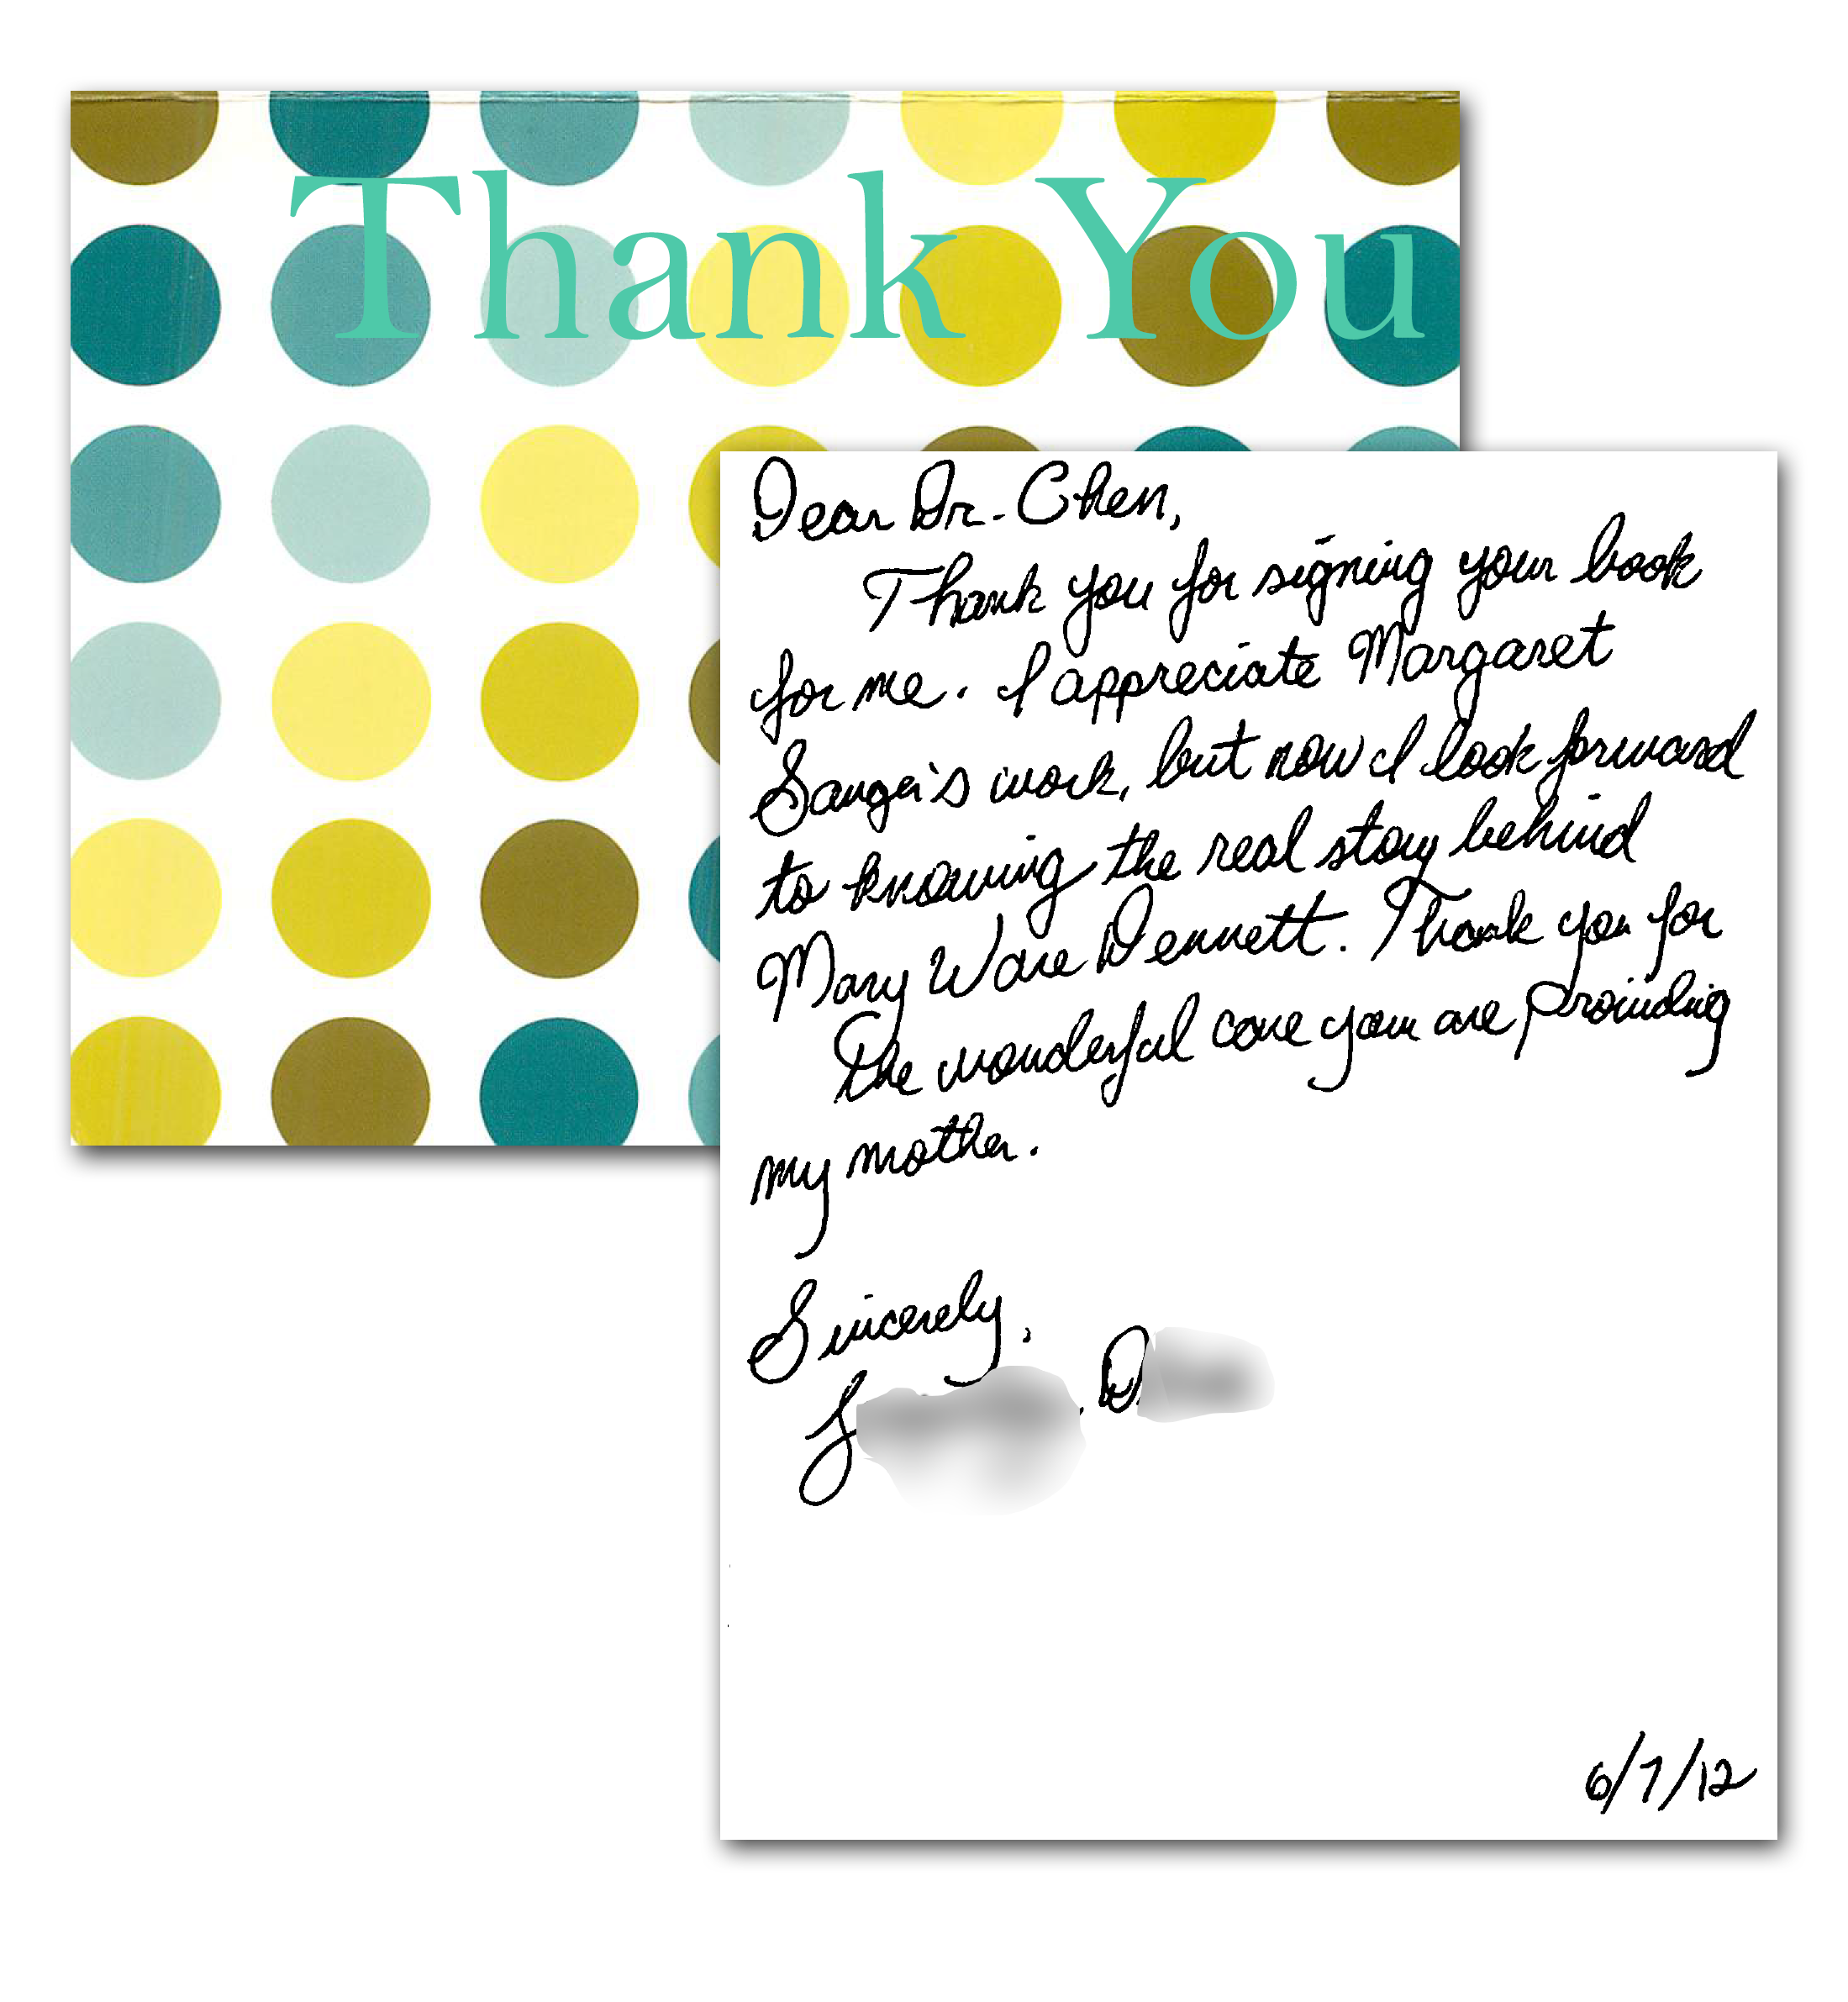 Thank You
Dear Dr. Chen,
Thank you for signing your book
for me. I appreciate Margaret
Sanger's work, but now I look forward
to knowing the real story behind
Mary Ware Dennett. Thank you for
the wonderful care you are providing
my mother.
Sincerely,
D
6/7/12